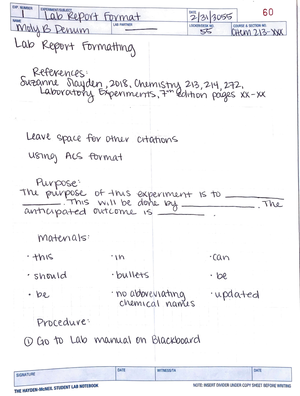 EXP. NUMBER EXPERIMENT/SUBJECT DATE
1 Lab Report Format 2/31/3055 60
NAME LAB PARTNER LOCKER/DESK NO. COURSE & SECTION NO.
Moly B. Denum 55 Chem 213-XXX
Lab Report Formatting
References:
Suzanne Slayden, 2018, Chemistry 213, 214, 272,
Laboratory Experiments, 7th edition pages xx-xx
Leave space for other citations
using ACS format
Purpose:
The purpose of this experiment is to ________
________. This will be done by ________. The
anticipated outcome is ________.
Materials:
· this · in · can
· should · bullets · be
· be · no abbreviating · updated
chemical names
Procedure:
① Go to Lab manual on Blackboard
SIGNATURE DATE WITNESS/TA DATE
THE HAYDEN-McNEIL STUDENT LAB NOTEBOOK NOTE: INSERT DIVIDER UNDER COPY SHEET BEFORE WRITING